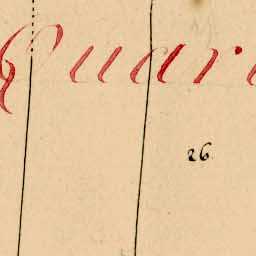 Quar
26